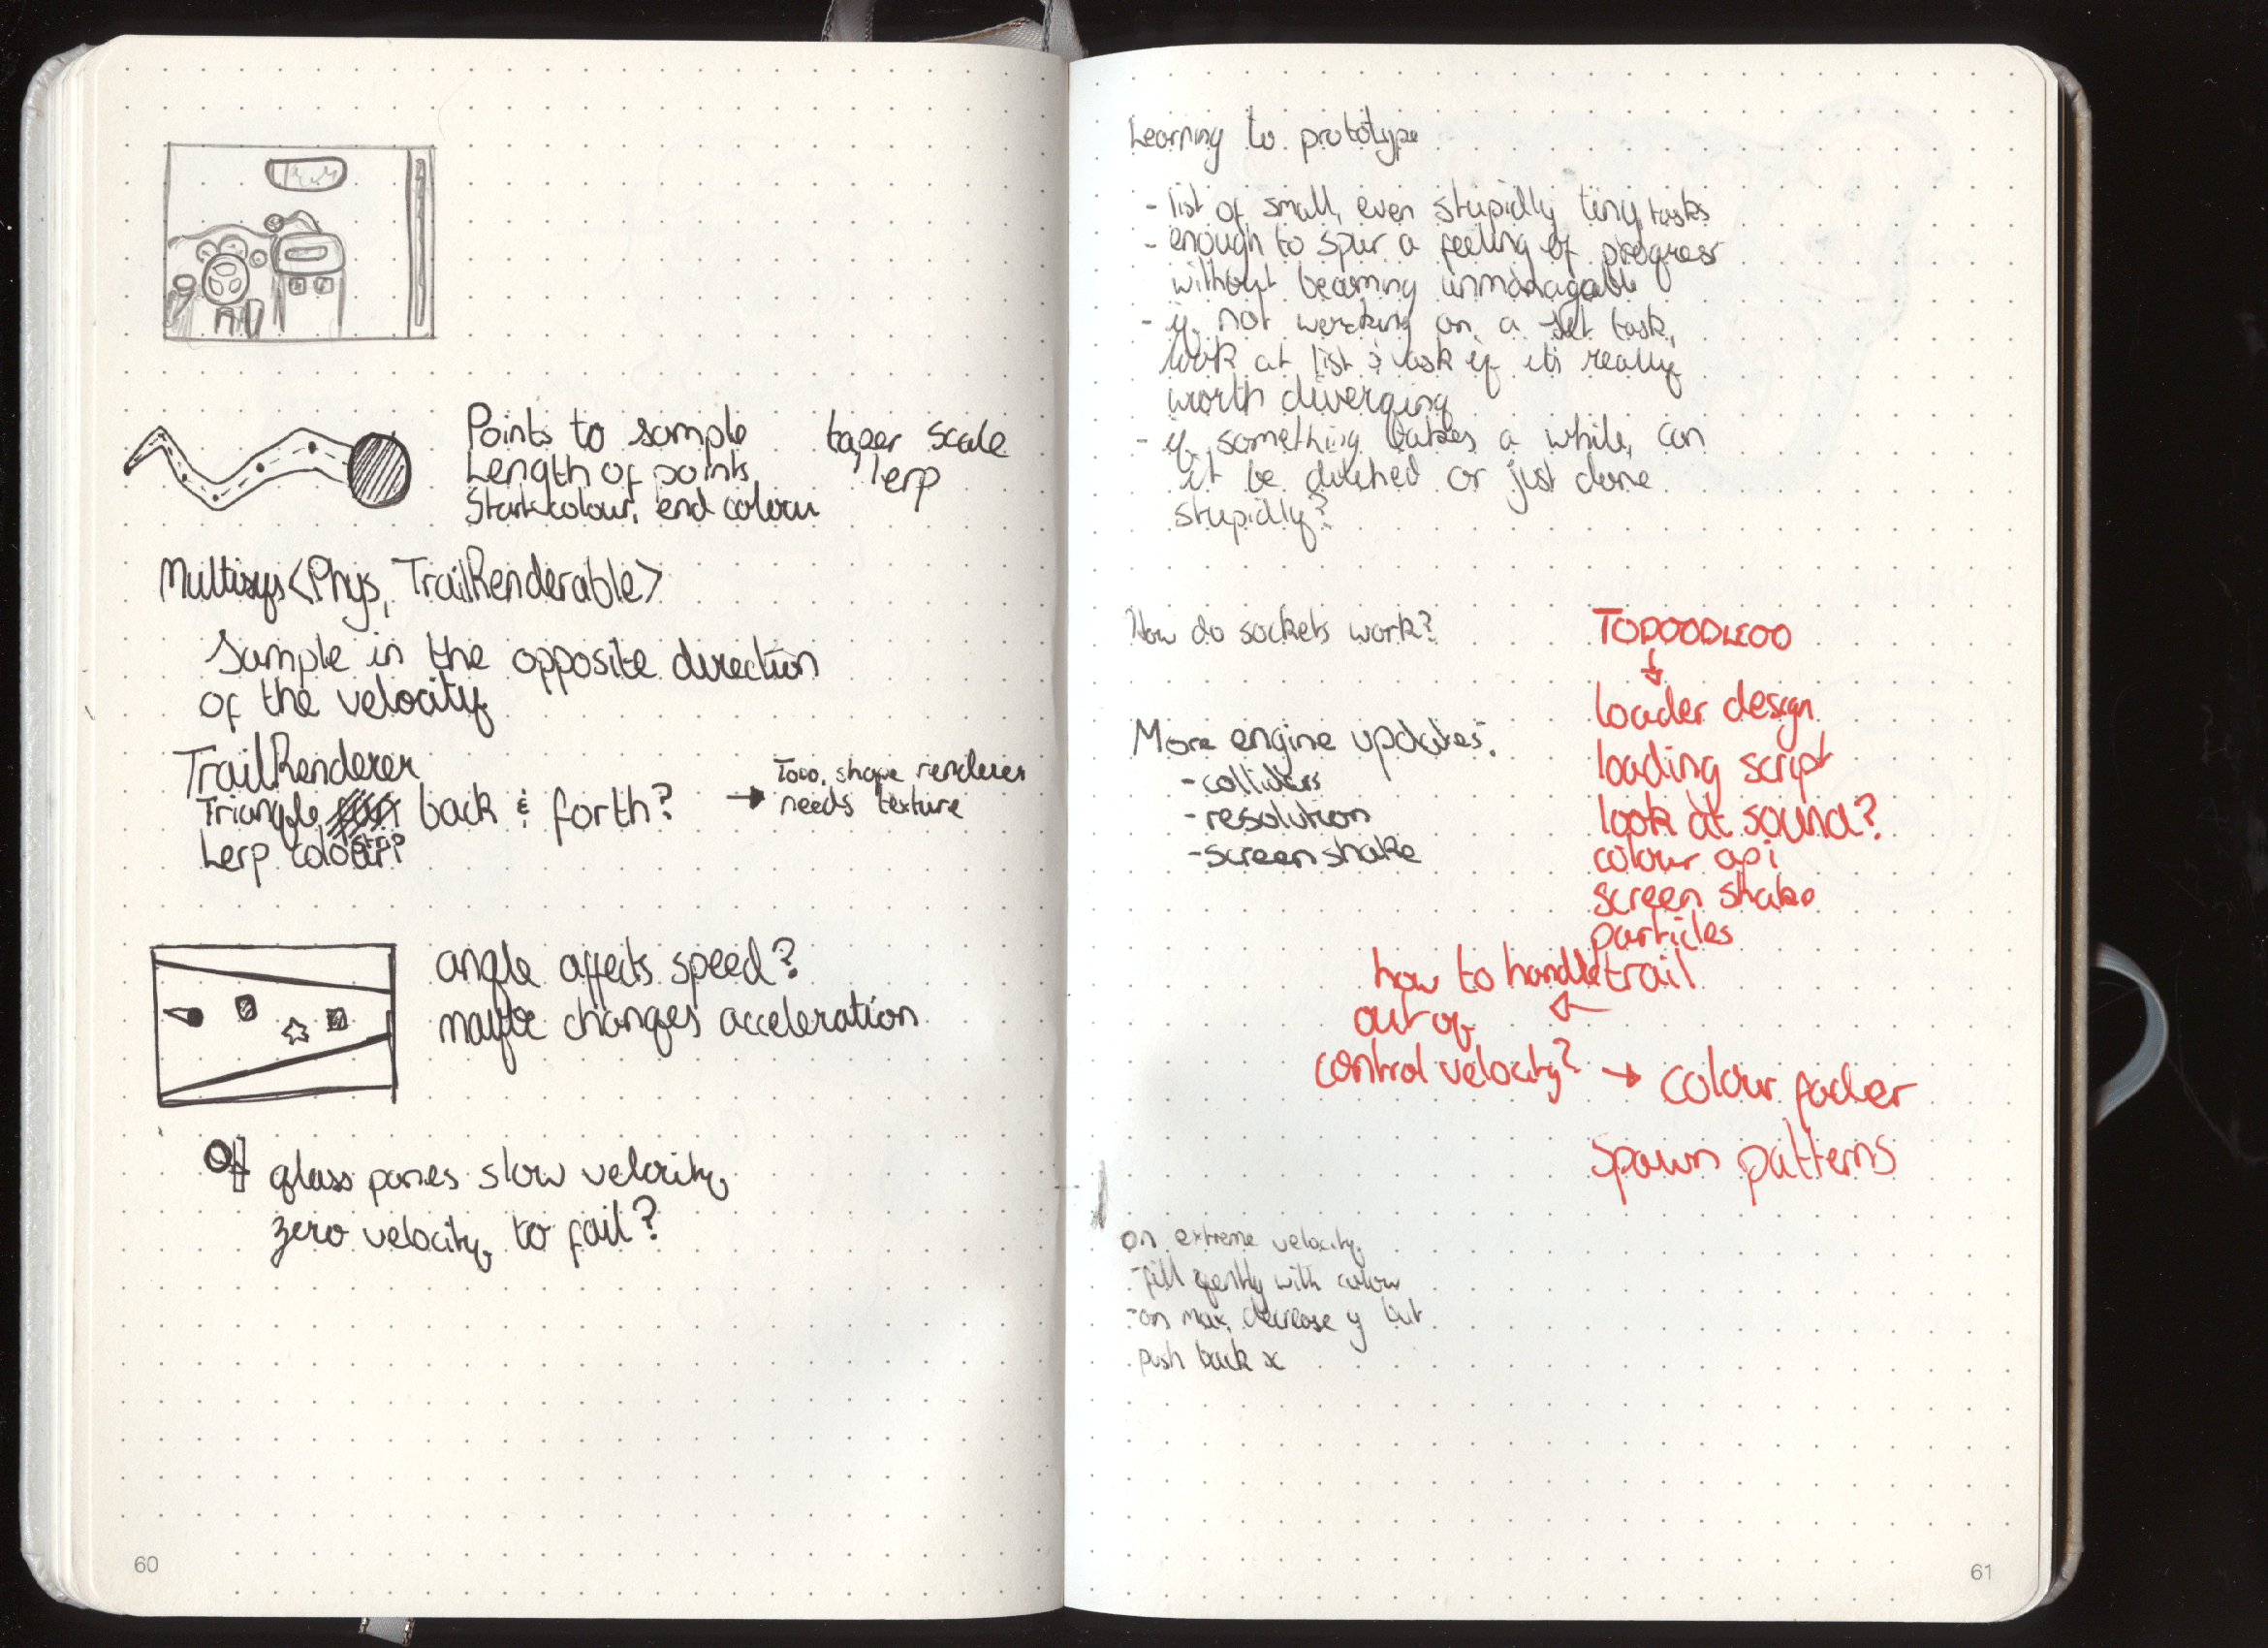 Points to sample
taper scale
Length of points
lerp
Start colour, end colour
Multisys<Phys, TrailRenderable>
Sample in the opposite direction
of the velocity
TrailRenderer
Triangle back & forth?
strip
Lerp colour?
→ Todo, shape renderer
needs texture
angle affects speed?
maybe changes acceleration
glass panes slow velocity,
zero velocity to fail?
60
Learning to prototype
- list of small, even stupidly tiny tasks
- enough to spur a feeling of progress
without becoming unmanagable
- if not working on a set task,
look at list & ask if it's really
worth diverging
- if something takes a while, can
it be ditched or just done
stupidly?
How do sockets work?
More engine updates:
- colliders
- resolution
- screenshake
TODOODLEOO
↓
loader design
loading script
look at sound?
colour api
screen shake
particles
trail
← how to handle
out of
control velocity?
→ colour fader
spawn patterns
on extreme velocity,
- fill gently with colour
- on max, decrease y but
push back x
61